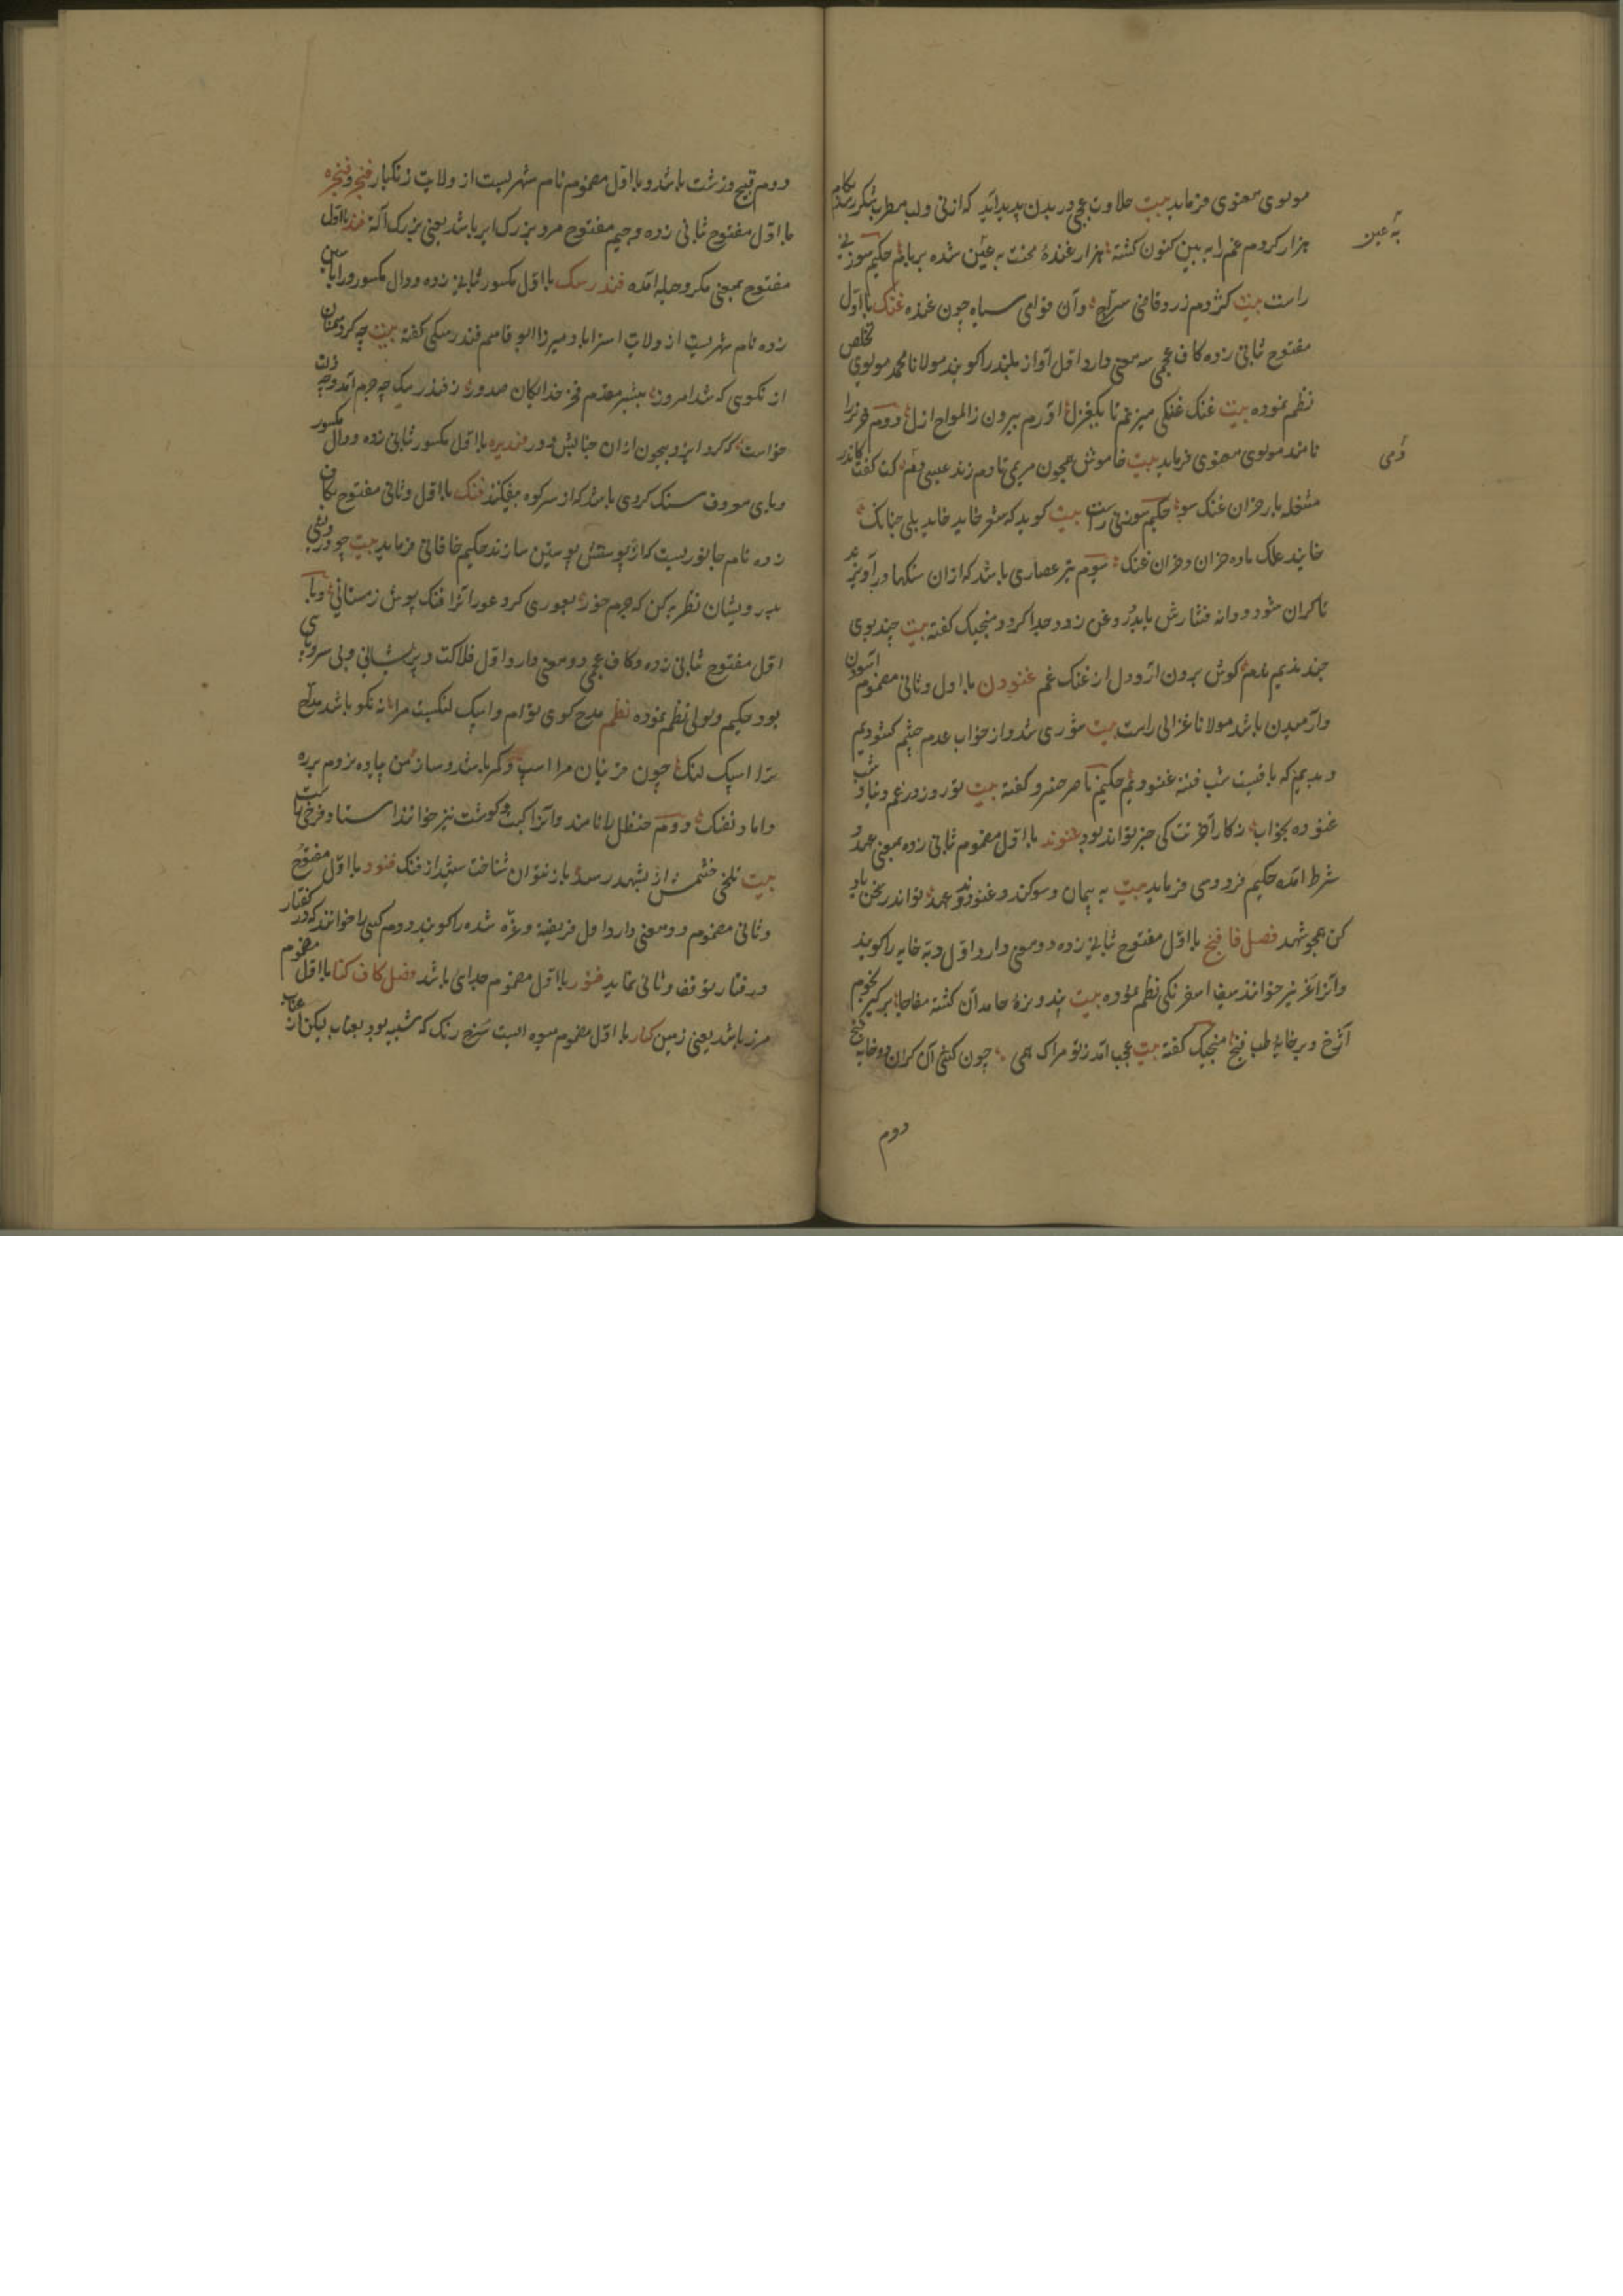 مولوی معنوی فرماید بیت حلاوت عجبی در بدن پدید آید که از نی و لب مطرب شکر رسید بکام
هزار کردم غم را به بین کنون کشته هزار غندهٔ محنت به غین شده بریانم حکیم سوزنی
به عین
راست بیت کژدم زرد وفامی سراج وآن فوای سیاه چون غنده غنک با اول
مفتوح ثانی زده کاف عجمی سه معنی دارد اول آواز بلند را کویند مولانا محمد مولوی تخلص
نظم نموده بیت غنک غنکی میزنم تا یکغزل آورم بیرون ز الواح ازل دوم خر نر را
نامند مولوی معنوی فرماید بیت خاموش همچون مریمی تا دم زند عیسی دمت کت کفت کاندر
دمی
مشغله یار خران غنک شو حکیم سوزنی راست بیت کوید که شعر خاید خاید بلی چنانک
خایند علک ماده خران و خران غنک سیوم تیر عصاری باشد که ازان سنکها در آویزند
تا کران شود و دانه فشارش یابد و روغن زود جدا کردد منجیک کفته بیت چند بوی
چند ندیم ندم کوش برون آر و دل از غنک غم غنودن با اول و ثانی مضموم آسودن
وآرمیدن باشد مولانا غزالی راست بیت شوری شد و از خواب عدم چشم کشودیم
دیدیم که باقیست شب فتنه غنودیم حکیم ناصر خسرو کفته بیت تو روز در غم دنیا و شب
غنوده بخواب ز کار آخرتت کی خبر تواند بود غنوند با اول مضموم ثانی زده بمعنی عهد و
شرط آمده حکیم فردوسی فرماید بیت به پیمان و سوکند و غنوند و عهد تو اندر سخن یاد
کن همچو شهد فصل فا فنج با اول مفتوح ثانی زده دو معنی دارد اول دبه خایه را کویند
وآنرا غر نیز خوانند سیف اسفرنکی نظم نموده بیت بر کیر نجوم
آژخ و بر خایهٔ طب فنج منجیک کفته بیت عجب آمد ز تو مرا ک همی چون کشی آن کران دو خایه فنج
دوم
دوم قبیح و زشت باشد و با اول مضموم نام شهریست از ولایت زنکبار فنجر و فنجره
با اول مفتوح ثانی زده و جیم مفتوح مرد بزرک ابر باشد یعنی بزرک آلة فند با اول
مفتوح بمعنی مکر و حیله آمده فندرسک با اول مکسور ثانی زده و دال مکسور ورا با سین
زده نام شهریست از ولایت استراباد میرزا ابو قاسم فندرسکی کفته بیت چه کرد سمنان
از نکویی که شد امروز بیشتر مقدم فخر خدایکان صدور ز فندرسک چه جرم آمد وچه زلت
خواست که کرد ایزد بیچون ازان جنابش دور فندیره با اول مکسور ثانی زده و دال مکسور
ویای معروف سنک کردی باشد که از سر کوه بیفکنند فنک با اول و ثانی مفتوح بکاف
زده نام جانوریست که از پوستش پوستین سازند حکیم خاقانی فرماید بیت چو در نغی
بدرویشان نظر به کن که جرم خور بعوری کرد عورانرا فنک پوش زمستانی و با
اول مفتوح ثانی زده و کاف عجمی دو معنی دارد اول فلاکت و پریشانی و بی سر و پایی
بود حکیم نظم نموده نظم مدح کوی تو ام و اسپک لنکیست مرا نه نکو باشد مداح
ترا اسپک لنک چون مرا اسپ وکر باشد و ساز من پیاده بزوم بر ره
داماد نفنک دوم حنظل را نامند وآنرا کبست و کوشت نیز خوانند استاد فرخی راست
بیت تلخی خشمش ار بشهد رسد باز نتوان شناخت شهد از فنک فنود با اول مفتوح
و ثانی مضموم دو معنی دارد اول فریفته و غره شده را کویند دوم کسی را خوانند که در کفتار
و رفتار توقف و ثانی نماید فنور با اول مضموم جدای باشد فصل کاف کنا با اول مضموم
مرز باشد یعنی زمین کنار با اول مضموم میوه ایست سرخ رنک که شبیه بود بعناب لیکن از عناب